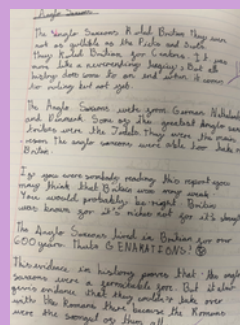 Anglo Saxons
The Anglo Saxons Ruled Britian They were
not as gullible as the Picts and Scots
They Ruled Britian for Centures. It was
more like a neverending legacy! But all
history does come to an end when it comes
to ruling but not yet.
The Anglo Saxons were from German Netherlands
and Denmark. Some of the greatest Anglo saxon
tribes were the Jutes. They were the main
reson The anglo saxons were able too take over
Briton.
If you were somebody reading this report you
may think that Britain was very weak.
You would probably be right Britian
was known for it's riches not for it's strength
The Anglo Saxons lived in Britian for over
600 years. Thats GENARATIONS!
This evidance in history proves that the anglo
saxons were a remarkable for. But it also
gevis evidance that they couldn't take over
with the Romans there because the Romans
were the strongest of them all